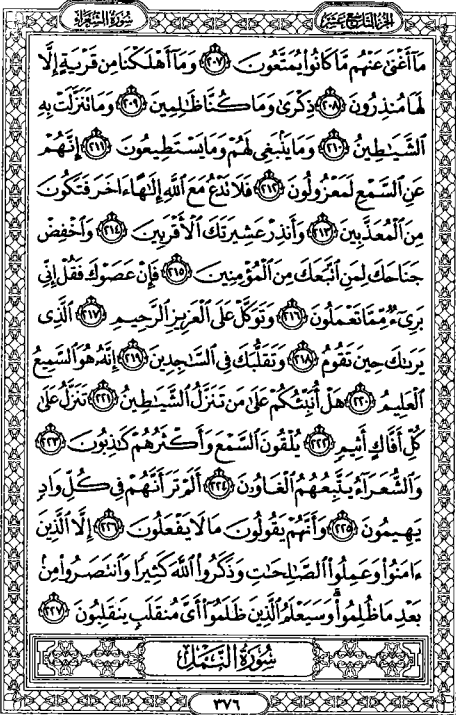 سُورَةُ الشُّعَرَاءِ
الجزء التاسع عشر
مَآ أَغْنَىٰ عَنْهُم مَّا كَانُوا۟ يُمَتَّعُونَ ٢٠٧ وَمَآ أَهْلَكْنَا مِن قَرْيَةٍ إِلَّا
لَهَا مُنذِرُونَ ٢٠٨ ذِكْرَىٰ وَمَا كُنَّا ظَٰلِمِينَ ٢٠٩ وَمَا تَنَزَّلَتْ بِهِ
ٱلشَّيَٰطِينُ ٢١٠ وَمَا يَنۢبَغِى لَهُمْ وَمَا يَسْتَطِيعُونَ ٢١١ إِنَّهُمْ
عَنِ ٱلسَّمْعِ لَمَعْزُولُونَ ٢١٢ فَلَا تَدْعُ مَعَ ٱللَّهِ إِلَٰهًا ءَاخَرَ فَتَكُونَ
مِنَ ٱلْمُعَذَّبِينَ ٢١٣ وَأَنذِرْ عَشِيرَتَكَ ٱلْأَقْرَبِينَ ٢١٤ وَٱخْفِضْ
جَنَاحَكَ لِمَنِ ٱتَّبَعَكَ مِنَ ٱلْمُؤْمِنِينَ ٢١٥ فَإِنْ عَصَوْكَ فَقُلْ إِنِّى
بَرِىٓءٌ مِّمَّا تَعْمَلُونَ ٢١٦ وَتَوَكَّلْ عَلَى ٱلْعَزِيزِ ٱلرَّحِيمِ ٢١٧ ٱلَّذِى
يَرَىٰكَ حِينَ تَقُومُ ٢١٨ وَتَقَلُّبَكَ فِى ٱلسَّٰجِدِينَ ٢١٩ إِنَّهُۥ هُوَ ٱلسَّمِيعُ
ٱلْعَلِيمُ ٢٢٠ هَلْ أُنَبِّئُكُمْ عَلَىٰ مَن تَنَزَّلُ ٱلشَّيَٰطِينُ ٢٢١ تَنَزَّلُ عَلَىٰ
كُلِّ أَفَّاكٍ أَثِيمٍ ٢٢٢ يُلْقُونَ ٱلسَّمْعَ وَأَكْثَرُهُمْ كَٰذِبُونَ ٢٢٣
وَٱلشُّعَرَآءُ يَتَّبِعُهُمُ ٱلْغَاوُۥنَ ٢٢٤ أَلَمْ تَرَ أَنَّهُمْ فِى كُلِّ وَادٍ
يَهِيمُونَ ٢٢٥ وَأَنَّهُمْ يَقُولُونَ مَا لَا يَفْعَلُونَ ٢٢٦ إِلَّا ٱلَّذِينَ
ءَامَنُوا۟ وَعَمِلُوا۟ ٱلصَّٰلِحَٰتِ وَذَكَرُوا۟ ٱللَّهَ كَثِيرًا وَٱنتَصَرُوا۟ مِنۢ
بَعْدِ مَا ظُلِمُوا۟ ۗ وَسَيَعْلَمُ ٱلَّذِينَ ظَلَمُوٓا۟ أَىَّ مُنقَلَبٍ يَنقَلِبُونَ ٢٢٧
سُورَةُ النَّمْلِ
٣٧٦